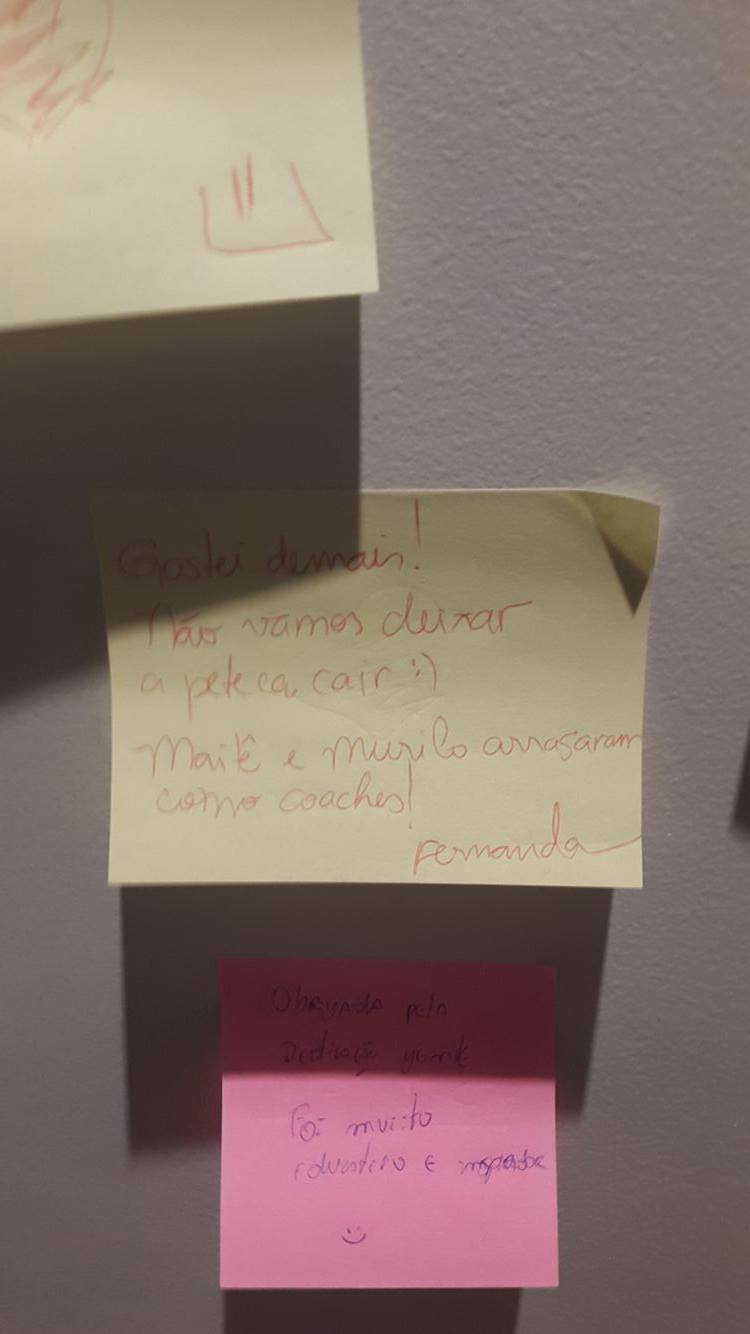 Gostei demais!
Não vamos deixar
a peteca cair :)
Maitê e Murilo arrasaram
como coaches!
Fernanda
Obrigada pela
Dedicação gente
Foi muito
educativo e inspirador